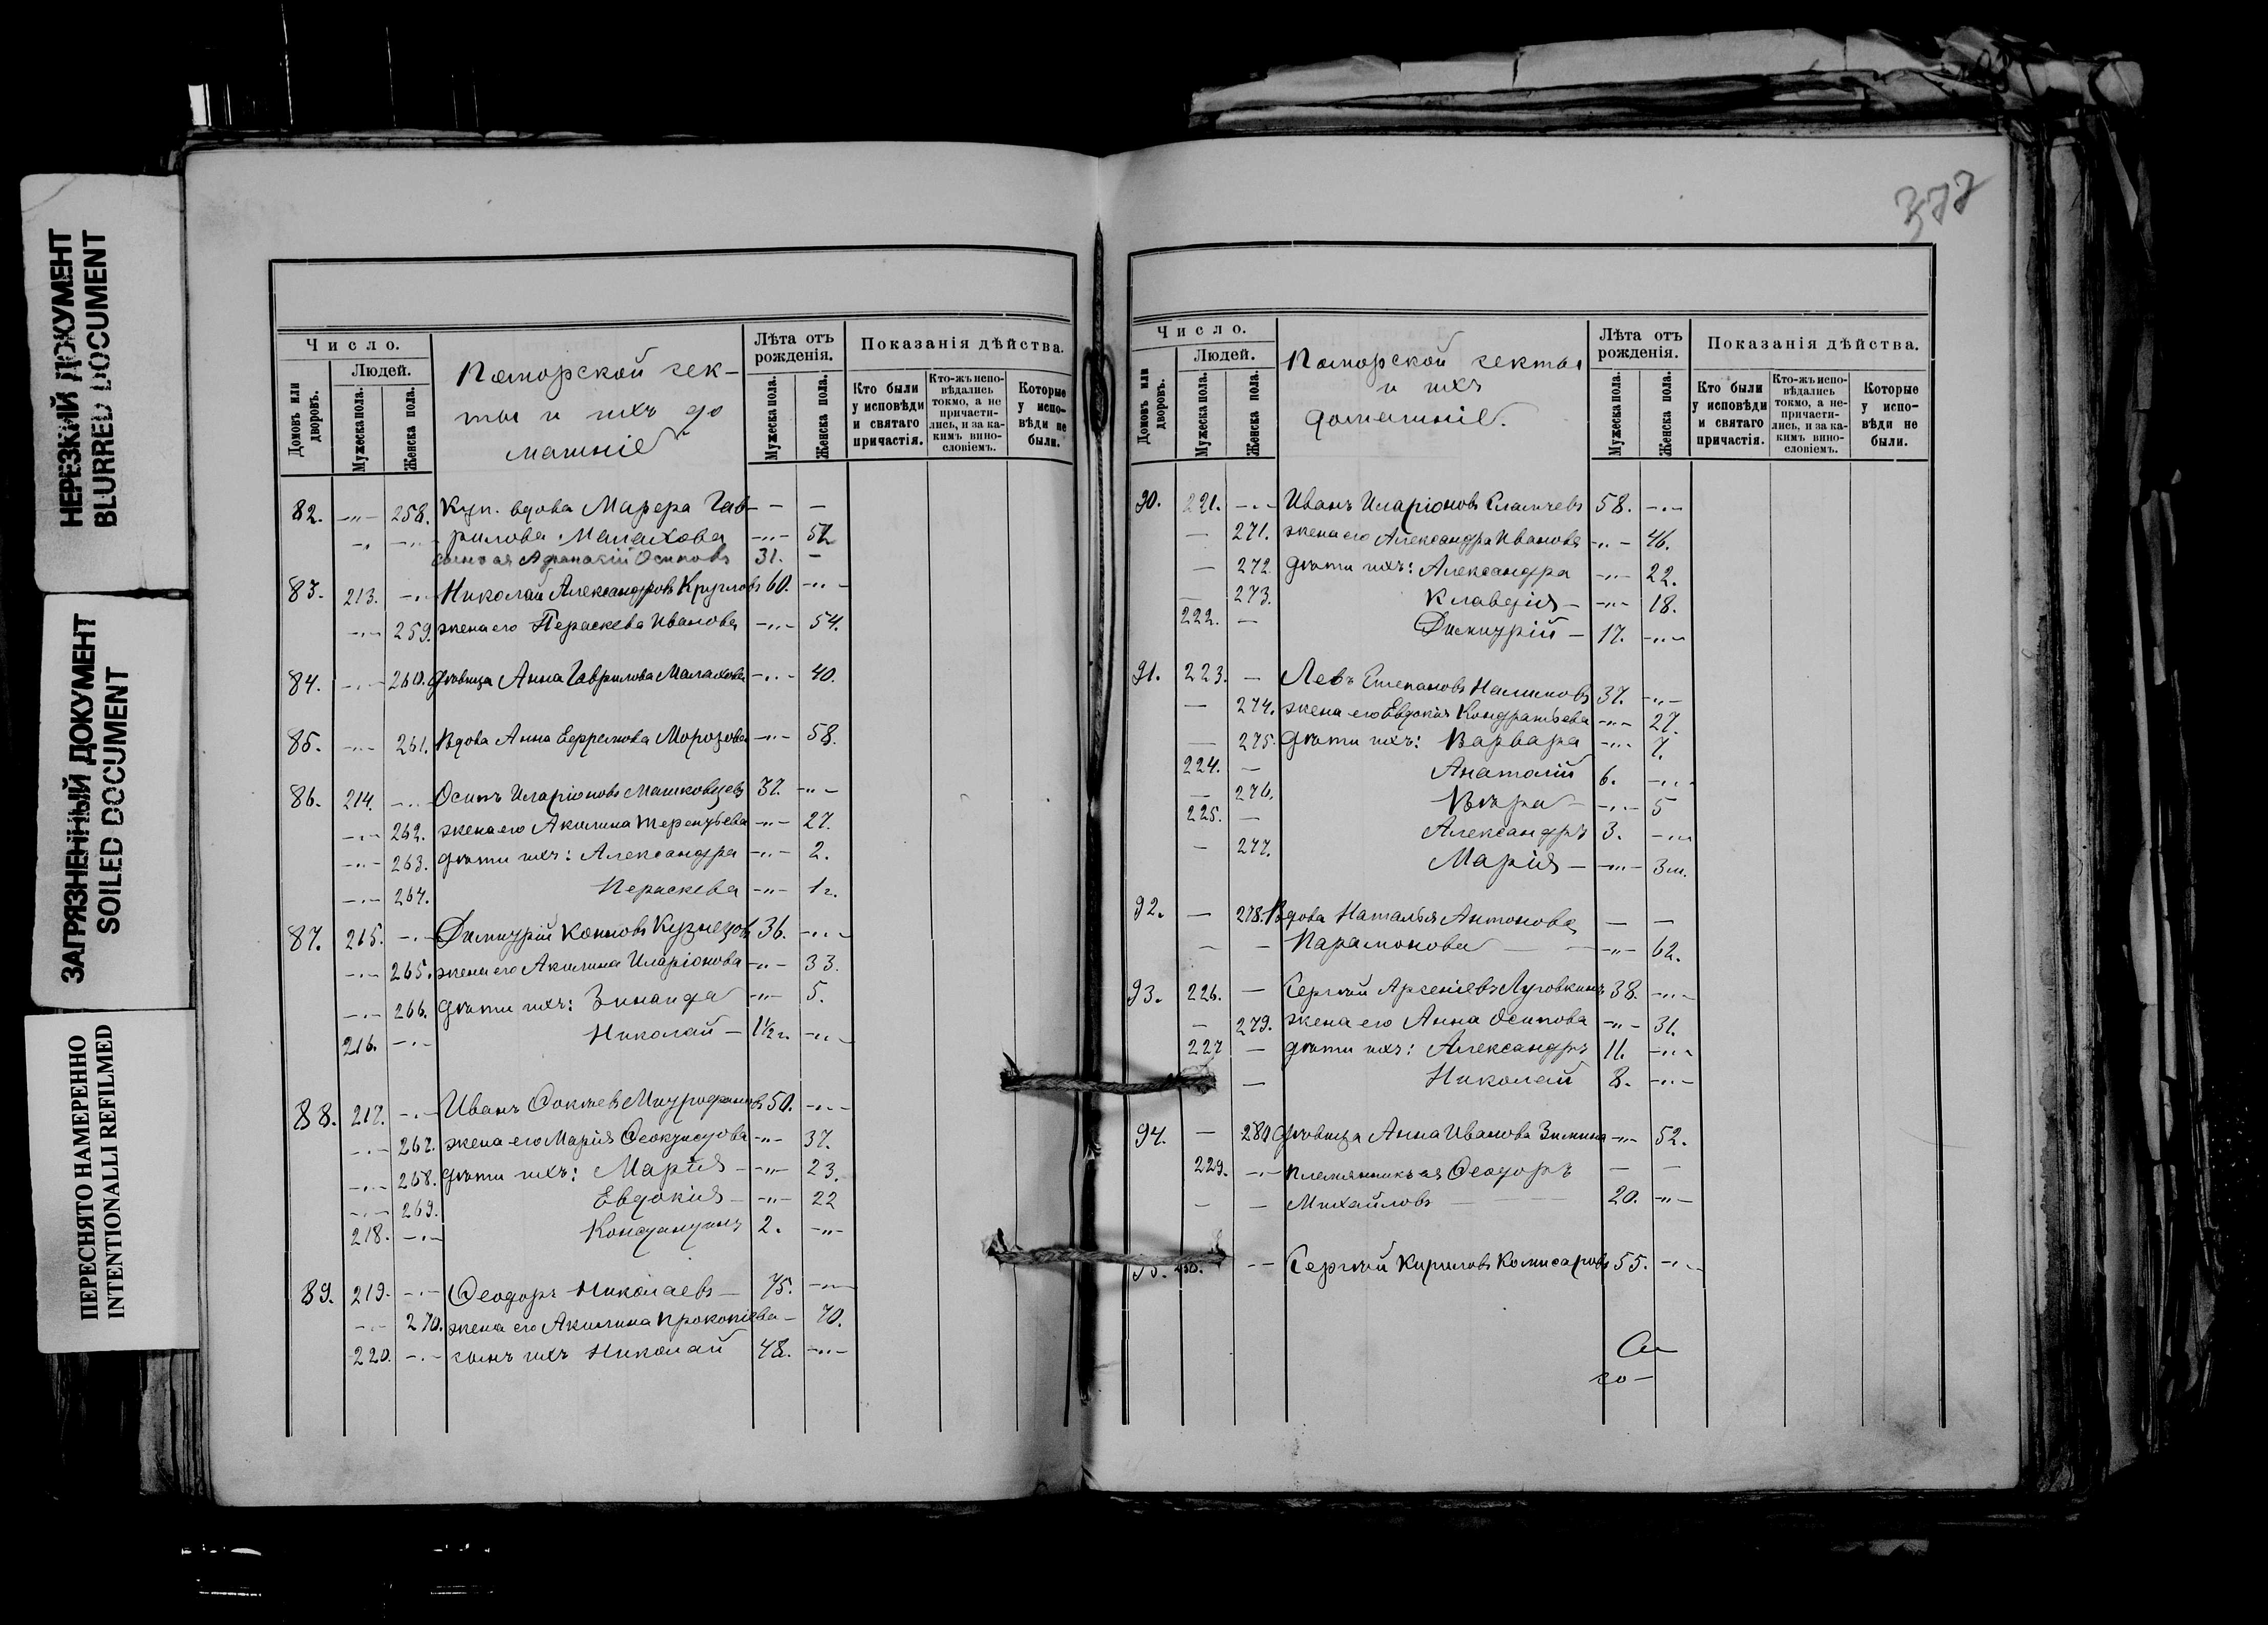 НЕРЕЗКИЙ ДОКУМЕНТ
BLURRED DOCUMENT
ЗАГРЯЗНЕННЫЙ ДОКУМЕНТ
SOILED DOCUMENT
ПЕРЕСНЯТО НАМЕРЕННО
INTENTIONALLI REFILMED
Число.
Людей.
Домовъ или дворовъ.
Мужеска пола.
Женска пола.
Поморской сек-
ты и ихъ до
машніе
Лѣта отъ рожденія.
Мужеска пола.
Женска пола.
Показанія дѣйства.
Кто были у исповѣди и святаго причастія.
Кто-жъ исповѣдались токмо, а не причастились, и за какимъ винословіемъ.
Которые у исповѣди не были.
82. -"- 258. Куп. вдова Марфа Гав- - -
рилова Малахова -"- 52
сынъ ея Афанасій Осиповъ 31. -
83. 213. -"- Николай Александровъ Кругловъ 60. -"-
-"- 259. жена его Параскева Иванова -"- 54.
84. -"- 260. дѣвица Анна Гаврилова Малахова -"- 40.
85. -"- 261. Вдова Анна Ефремова Морозова -"- 58.
86. 214. -"- Осипъ Иларіоновъ Машковцевъ 37. -"-
-"- 262. жена его Акилина Терентьева -"- 27.
-"- 263. дѣти ихъ: Александра -"- 2.
-"- 264. Параскева -"- 1 г.
87. 215. -"- Димитрій Коновъ Кузнецовъ 36. -"-
-"- 265. жена его Акилина Иларіонова -"- 33.
-"- 266. дѣти ихъ: Зинаида -"- 5.
216. -"- Николай - 1½ г. -"-
88. 217. -"- Иванъ Митрофановъ 50. -"-
-"- 267. жена его Марія Ѳеоктистова -"- 37.
-"- 268. дѣти ихъ: Марія -"- 23.
-"- 269. Евдокія -"- 22
218. -"- Константинъ 2. -"-
89. 219. -"- Ѳеодоръ Николаевъ - 75. -"-
-"- 270. жена его Акилина Прокопіева - 70.
220. -"- сынъ ихъ Николай 48. -"-
377
Число.
Людей.
Домовъ или дворовъ.
Мужеска пола.
Женска пола.
Поморской секты
и ихъ
домашніе.
Лѣта отъ рожденія.
Мужеска пола.
Женска пола.
Показанія дѣйства.
Кто были у исповѣди и святаго причастія.
Кто-жъ исповѣдались токмо, а не-причастились, и за какимъ винословіемъ.
Которые у исповѣди не были.
90. 221. -"- Иванъ Иларіоновъ 58. -"-
- 271. жена его Александра Иванова -"- 46.
- 272 дѣти ихъ: Александра -"- 22.
- 273. Клавдія - -"- 18.
222. - Димитрій - 17. -"-
91. 223. - Левъ Степановъ Налимовъ 37. -"-
- 274. жена его Евдокія Кондратьева -"- 27.
- 275. дѣти ихъ: Варвара -"- 7.
224. - Анатолій 6. -"-
- 276. Вѣра - -"- 5
225. - Александръ 3. -"-
- 277. Марія - -"- 3 м.
92. - 278. Вдова Наталья Антонова - -
- - Парамонова -"- 62.
93. 226. - Сергѣй Арсеніевъ Луговкинъ 38. -"-
- 279. жена его Анна Осипова -"- 31.
227 - дѣти ихъ: Александръ 11. -"-
- Николай 8. -"-
94. - 280 дѣвица Анна Иванова Зимина -"- 52.
229. -"- племянникъ ея Ѳеодоръ - -
- - Михайловъ 20. -"-
95. 230. -- Сергѣй Кириловъ Комисаровъ 55. -"-